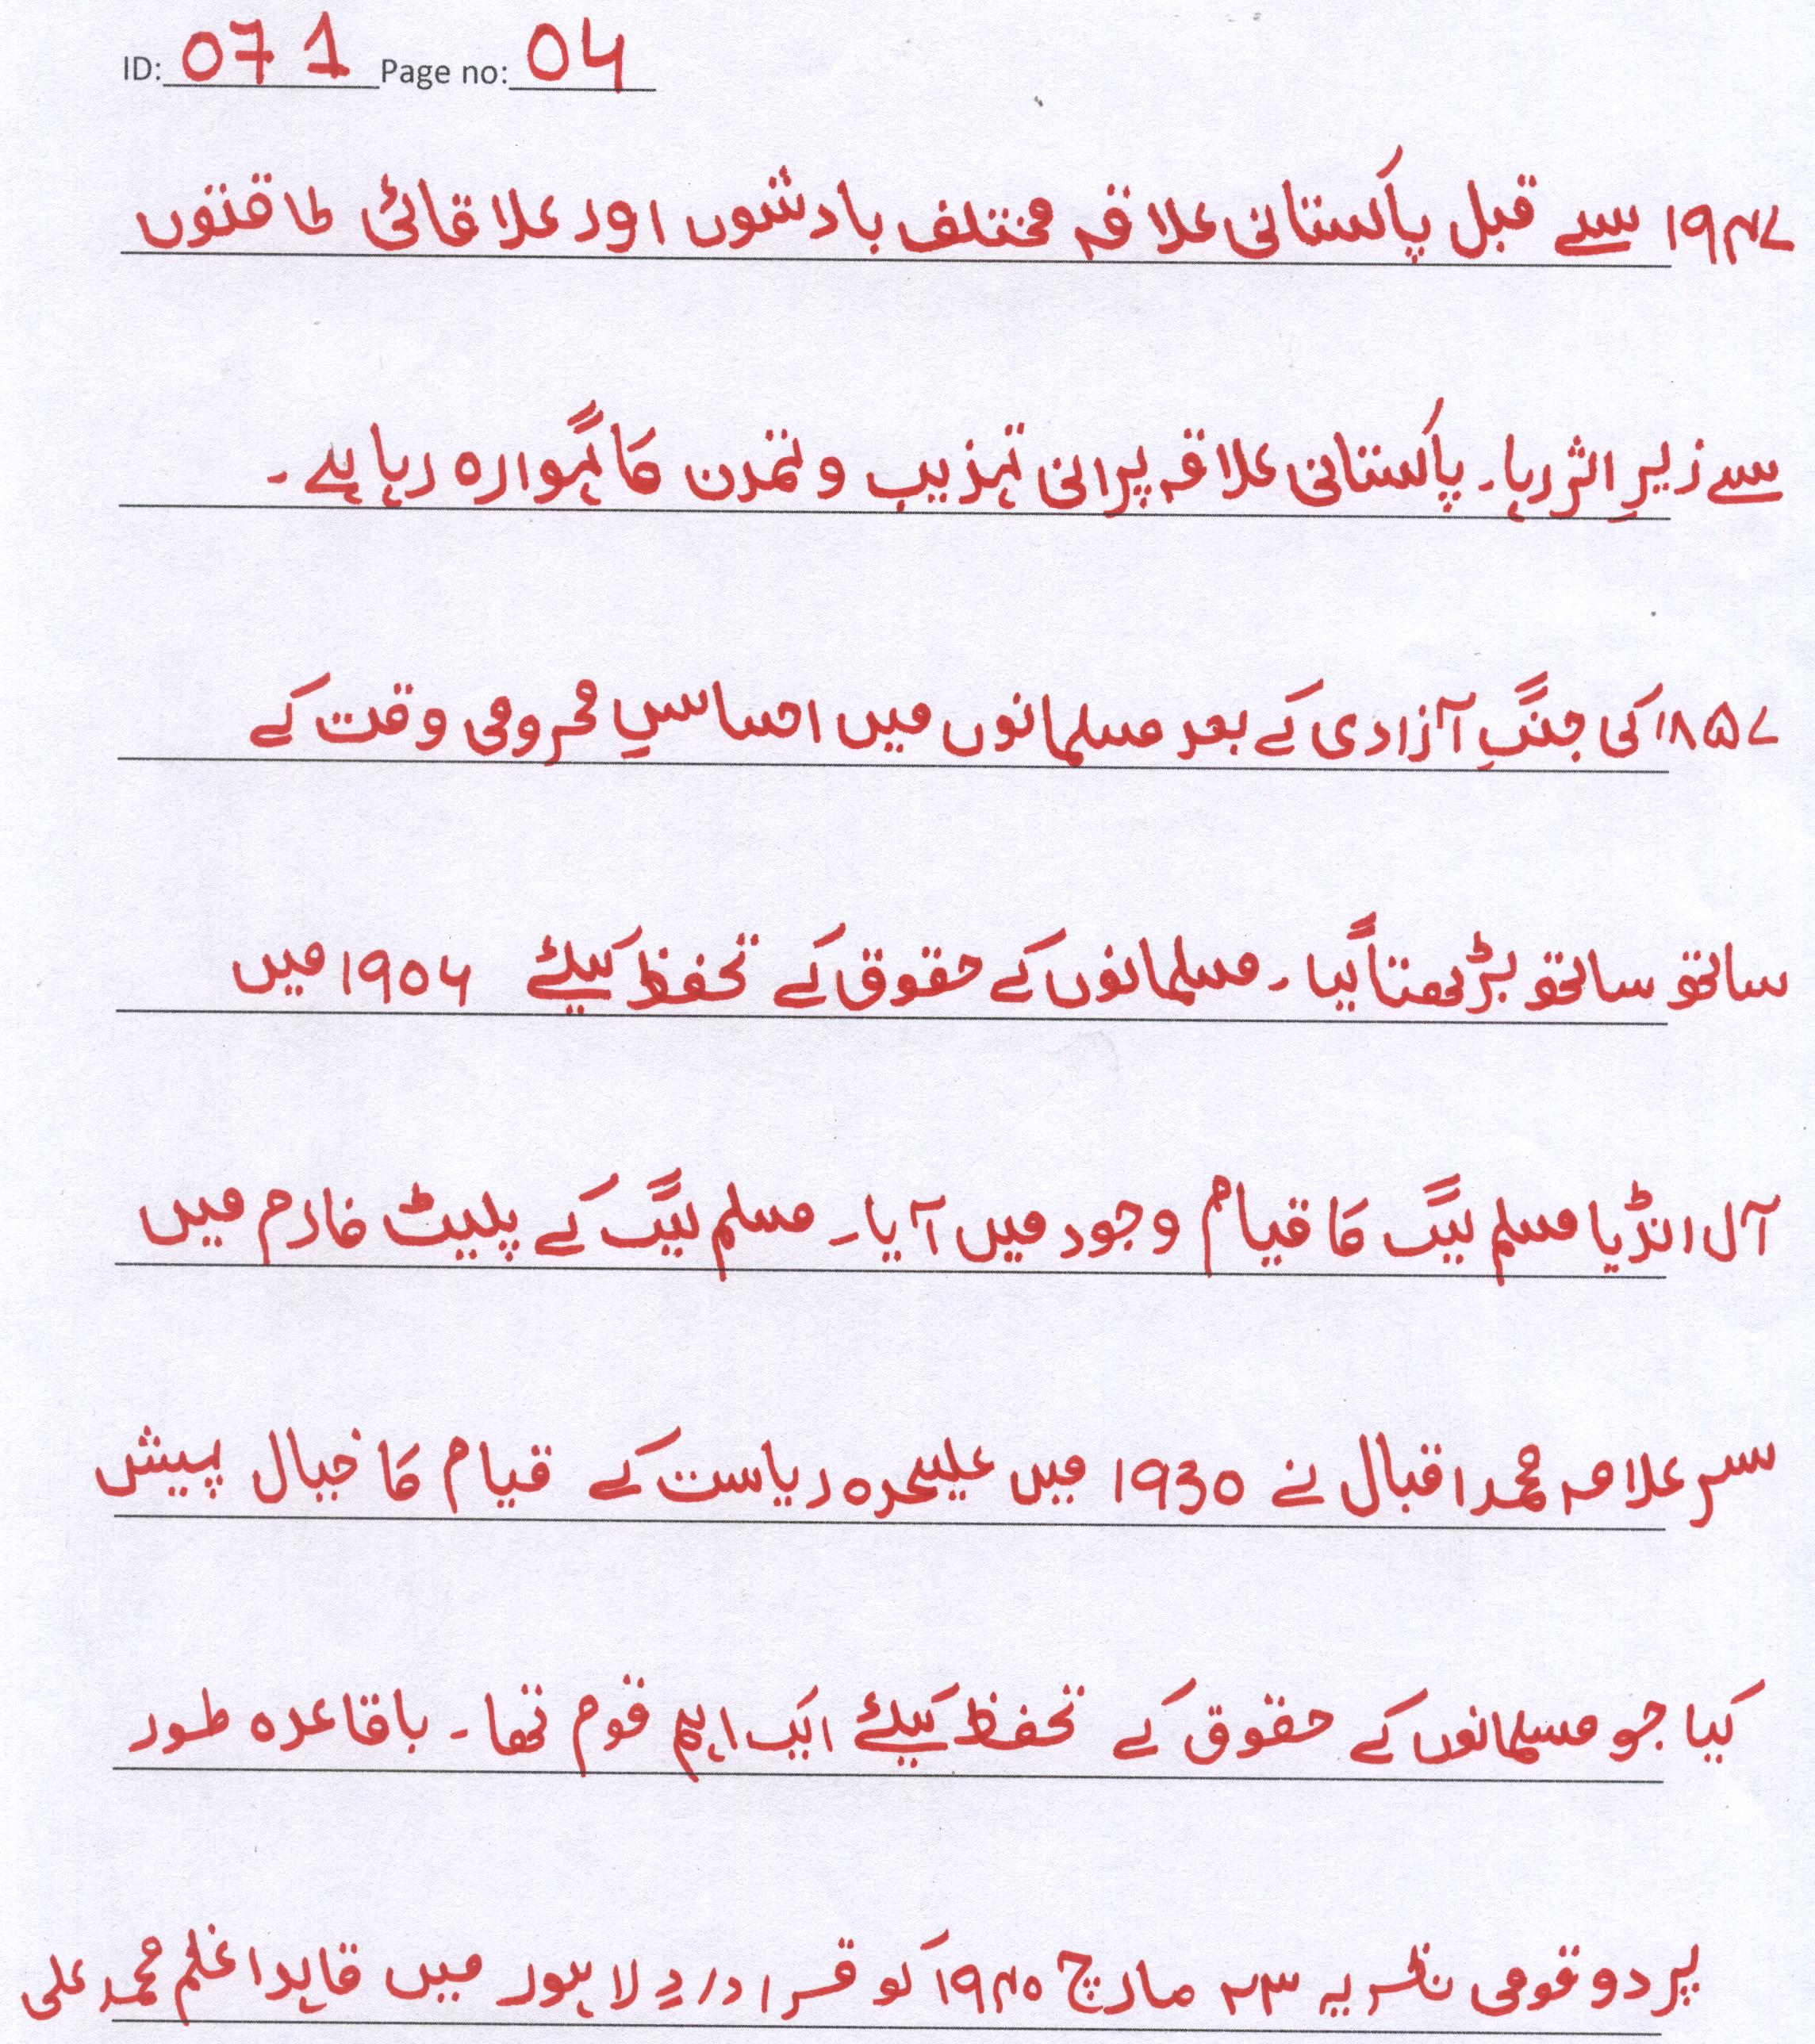 ID: 071 Page no: 04
۱۹۴۷ سے قبل پاکستانی علاقہ مختلف بادشوں اور علاقائی طاقتوں
سے زیرِ اثر رہا۔ پاکستانی علاقہ پرانی تہذیب و تمدن کا گہوارہ رہا ہے۔
۱۸۵۷ کی جنگِ آزادی کے بعد مسلمانوں میں احساسِ محرومی وقت کے
ساتھ ساتھ بڑھتا گیا۔ مسلمانوں کے حقوق کے تحفظ کیلئے ۱۹۰۶ میں
آل انڈیا مسلم لیگ کا قیام وجود میں آیا۔ مسلم لیگ کے پلیٹ فارم میں
سر علامہ محمد اقبال نے 1930 میں علیحدہ ریاست کے قیام کا خیال پیش
کیا جو مسلمانوں کے حقوق کے تحفظ کیلئے ایک اہم قوم تھا۔ باقاعدہ طور
پر دو قومی نظریہ ۲۳ مارچ ۱۹۴۰ کو قراردادِ لاہور میں قایداعظم محمد علی